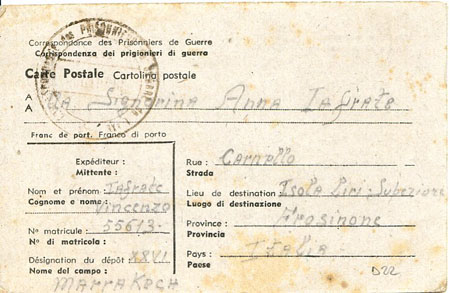 Correspondance des Prisonniers de Guerre
Corrispondenza dei prigionieri di guerra
Carte Postale Cartolina postale
A
A La Signorina Anna Iafrate
Franc de port. Franco di porto
Expéditeur :
Mittente :
Nom et prénom : Iafrate
Cognome e nome : Vincenzo
55613
N° matricule :
N° di matricola :
Désignation du dépôt :
Nome del campo :
Marrakech
Rue : Carnello
Strada
Lieu de destination : Isola Liri Superiore
Luogo di destinazione
Province : Frosinone
Provincia
Pays : Italia
Paese
D22